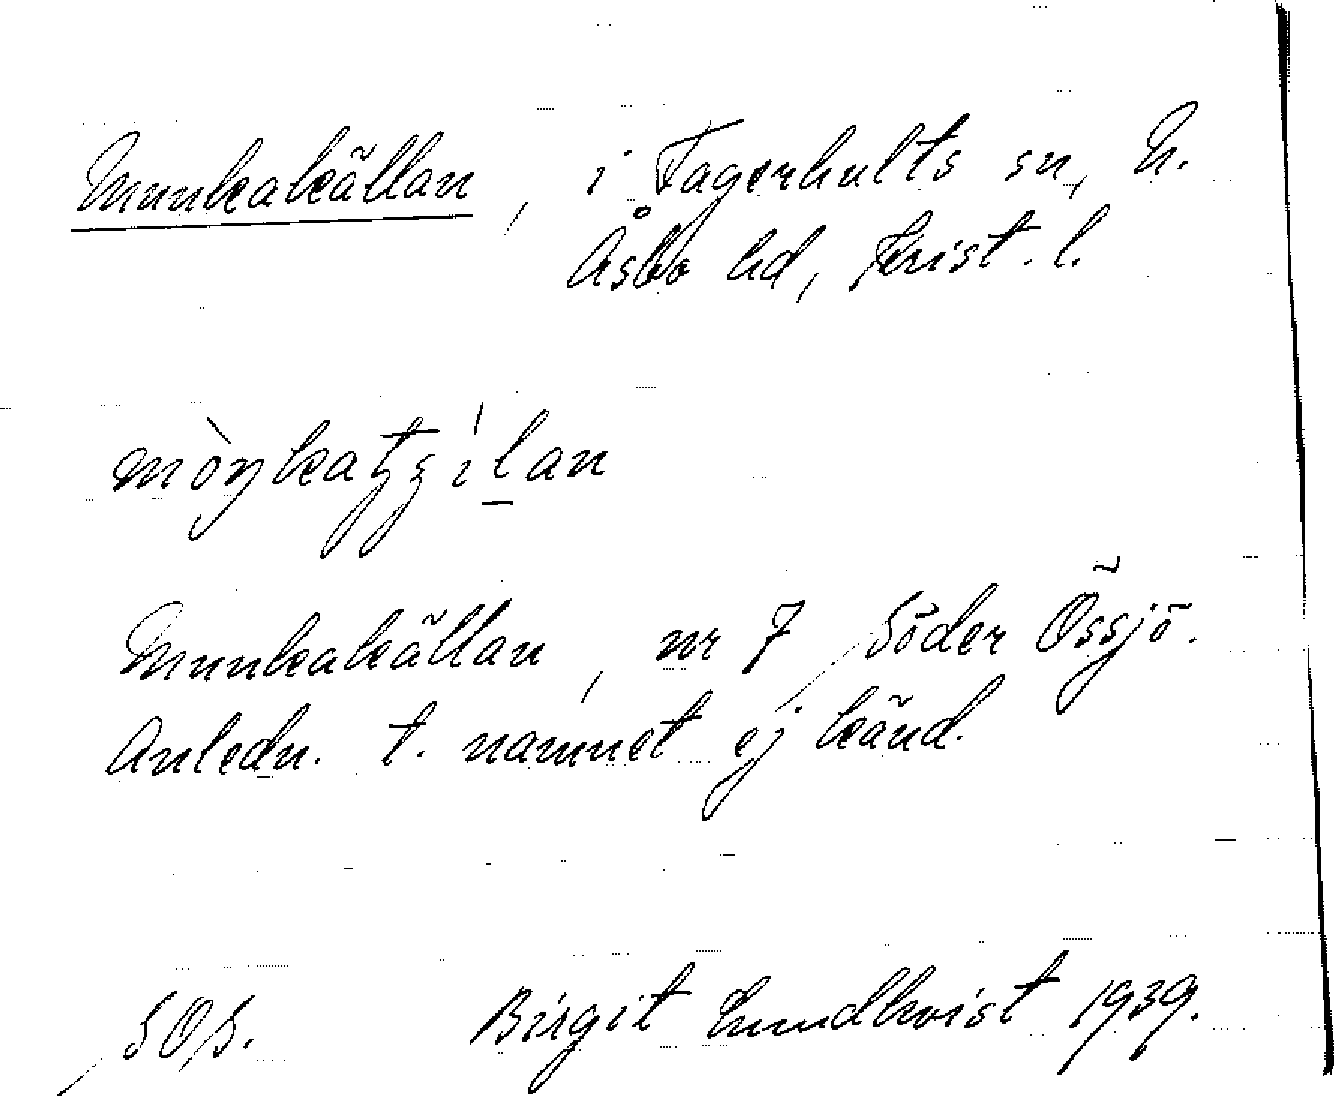 Munkakällan, i Fagerhults sn, N.
Åsbo hd, Krist. l.
Munkakällan, nr 7 Söder Össjö.
Anledn. t. namnet ej känd.
Birgit Lundkvist 1939.